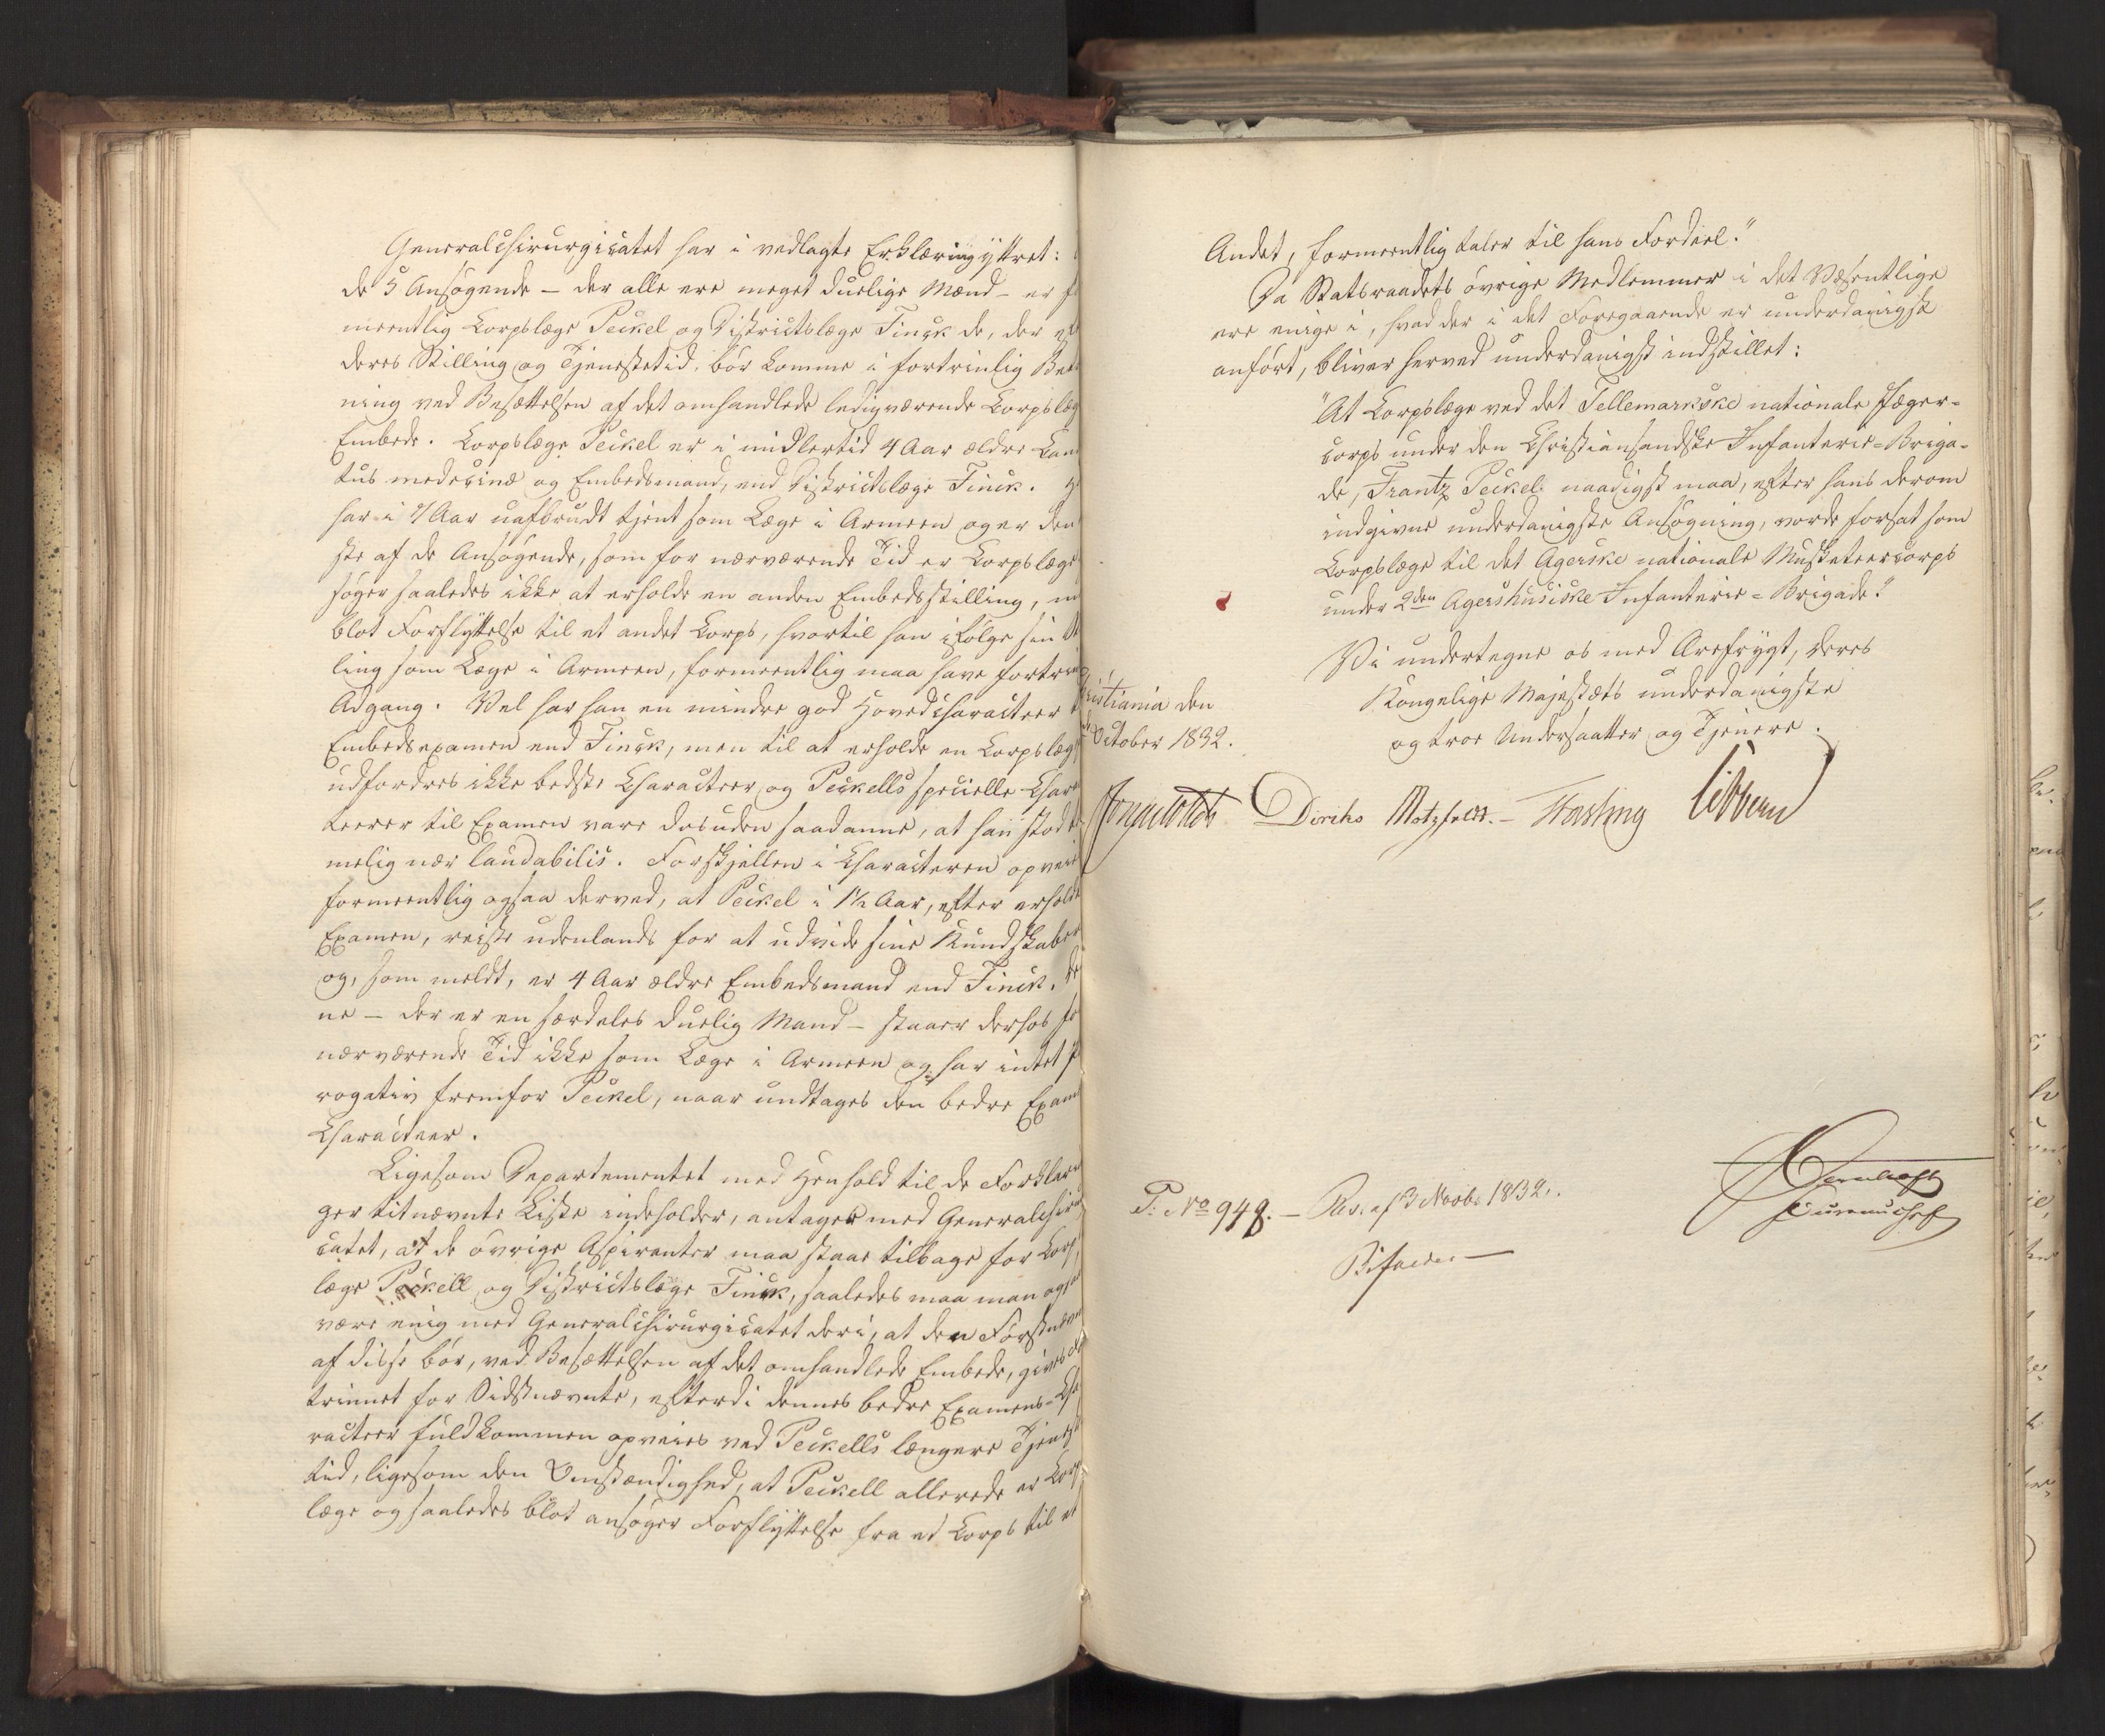 Generalchirurgicatet har i vedlagte Erklæring yttret:
de 5 Ansøgende – der alle ere meget duelige Mænd – er
meentlig Corpslæge Peckel og Districtslæge Finck de, der
deres Stilling og Tjenestetid, bør komme i fortrinlig
ning ved Besættelsen af det omhandlede ledigværende Corpslæg
Embede. Corpslæge Peckel er imidlertid 4 Aar ældre
tus medicinæ og Embedsmand, end Districtslæge Finck.
har i Aar uafbrudt tjent som Læge i Armeen og er den
ste af de Ansøgende, som for nærværende Tid er Corpslæge
søger saaledes ikke at erholde en anden Embedsstilling,
blot Forflyttelse til et andet Corps, hvortil han ifølge sin
ling som Læge i Armeen, formeentlig maa have fortrin
Adgang. Vel har han en mindre god Hovedcharacteer
Embedsexamen end Finck, men til at erholde en Corpslæg
udfordres ikke bedste Characteer og Peckells specielle Chara
teerer til Examen vare desuden saadanne, at han stod
melig nær laudabilis. Forskjellen i Characteren opveie
formeentlig ogsaa derved, at Peckel i 1½ Aar, efter erholdt
Examen, reiste udenlands for at udvide sine Kundskaber
og, som meldt, er 4 Aar ældre Embedsmand end Finck. De
ne – der er en særdeles duelig Mand – staaer derhos
nærværende Tid ikke som Læge i Armeen og har intet
rogativ fremfor Peckel, naar undtages den bedre Exam
Characteer.
Ligesom Departementet med Henhold til de Forklar
ger bitnævnte Liste indeholder, antager med Generalchirur
catet, at de øvrige Aspiranter maa staae tilbage for Corps
læge Peckell og Districtslæge Finck, saaledes maa man ogsaa
være enig med Generalchirurgicatet deri, at den Førstnævn
af disse bør, ved Besættelsen af det omhandlede Embede, gives
trinnet for Sidstnævnte, efterdi dennes bedre Examens-Cha
racteer fuldkommen opveies ved Peckells længere Tjeneste
tid, ligesom den Omstændighed, at Peckell allerede er Corps
læge og saaledes blot ansøger Forflyttelse fra et Corps til et
Andet, formeentlig taler til hans Fordeel."
Da Statsraadets øvrige Medlemmer i det Væsentlige
ere enige i, hvad der i det Foregaaende er underdanigst
anført, bliver herved underdanigst indstillet:
"At Corpslæge ved det Tellemarkske nationale Jæger-
corps under den Christiansandske Infanterie-Briga-
de, Frantz Peckel naadigst maa, efter hans derom
indgivne underdanigste Ansøgning, vorde forsat som
Corpslæge til det Agerske nationale Musketeercorps
under 2den Agershusiske Infanterie-Brigade."
Vi undertegne os med Ærefrygt, Deres
Kongelige Majestæts underdanigste
og troe Undersaatter og Tjenere.
ristiania den
October 1832.
Diriks Motzfeldt. – Fasting Vibbern
P. No 948. – Res. af 3 Novbr 1832.
Bifaldes –